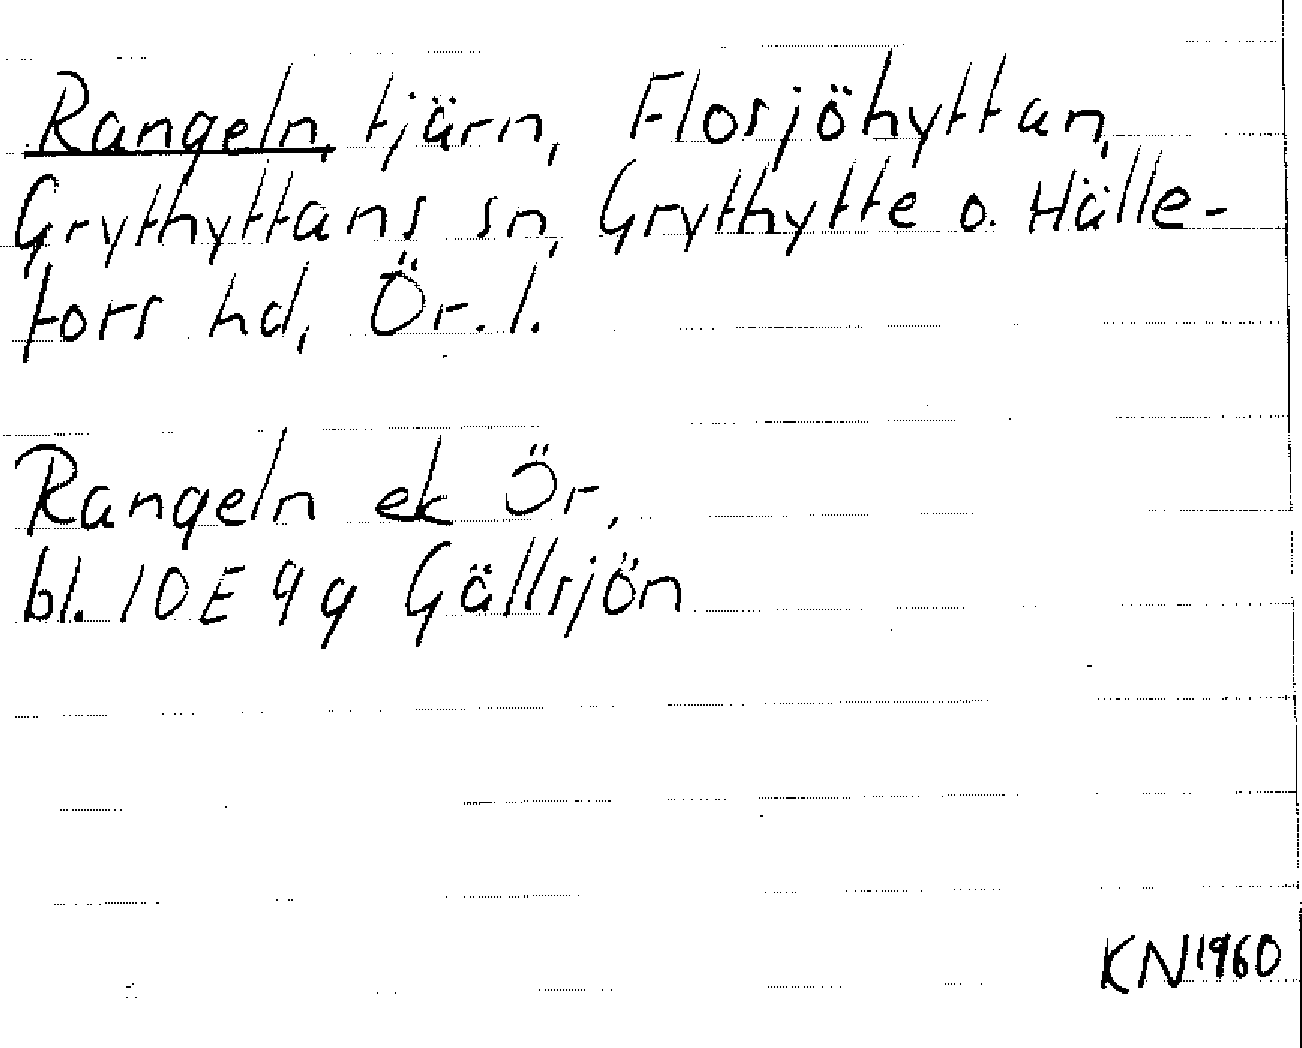 Rangeln, tjärn, Flosjöhyttan,
Grythyttans sn, Grythytte o. Hälle-
fors hd, Ör. l.
Rangeln ek Ör,
bl. 10E 9g Gällsjön
KN 1960